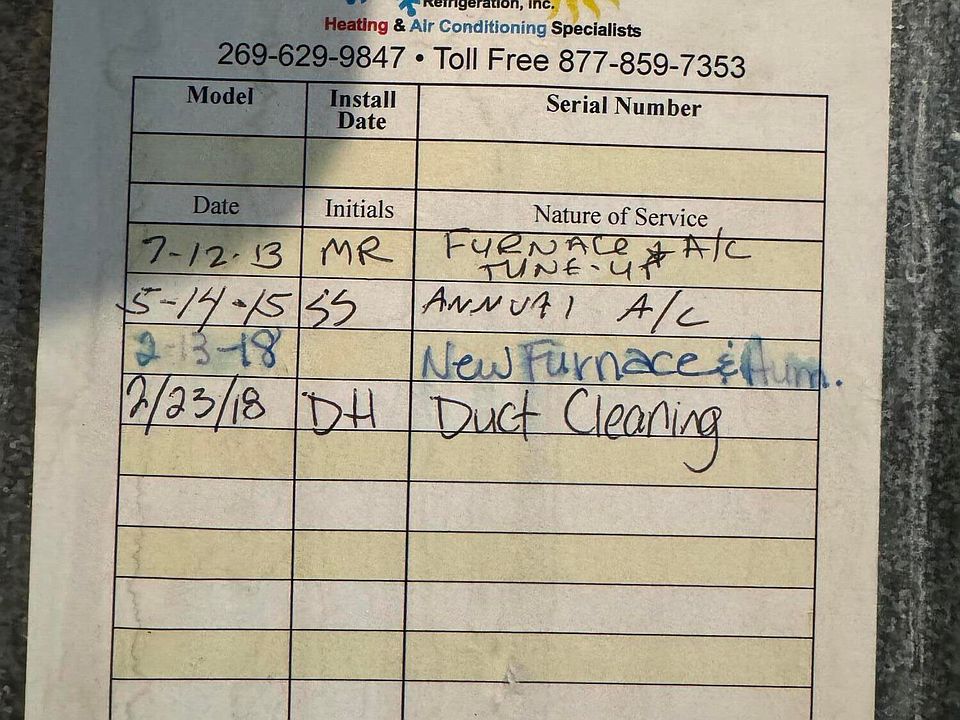 Refrigeration, Inc.
Heating & Air Conditioning Specialists
269-629-9847 • Toll Free 877-859-7353
Model Install Date Serial Number
Date Initials Nature of Service
7-12-13 MR FURNACE & A/C TUNE-UP
5-14-15 SS ANNUAL A/C
2-13-18 New Furnace & Hum.
2/23/18 DH Duct Cleaning